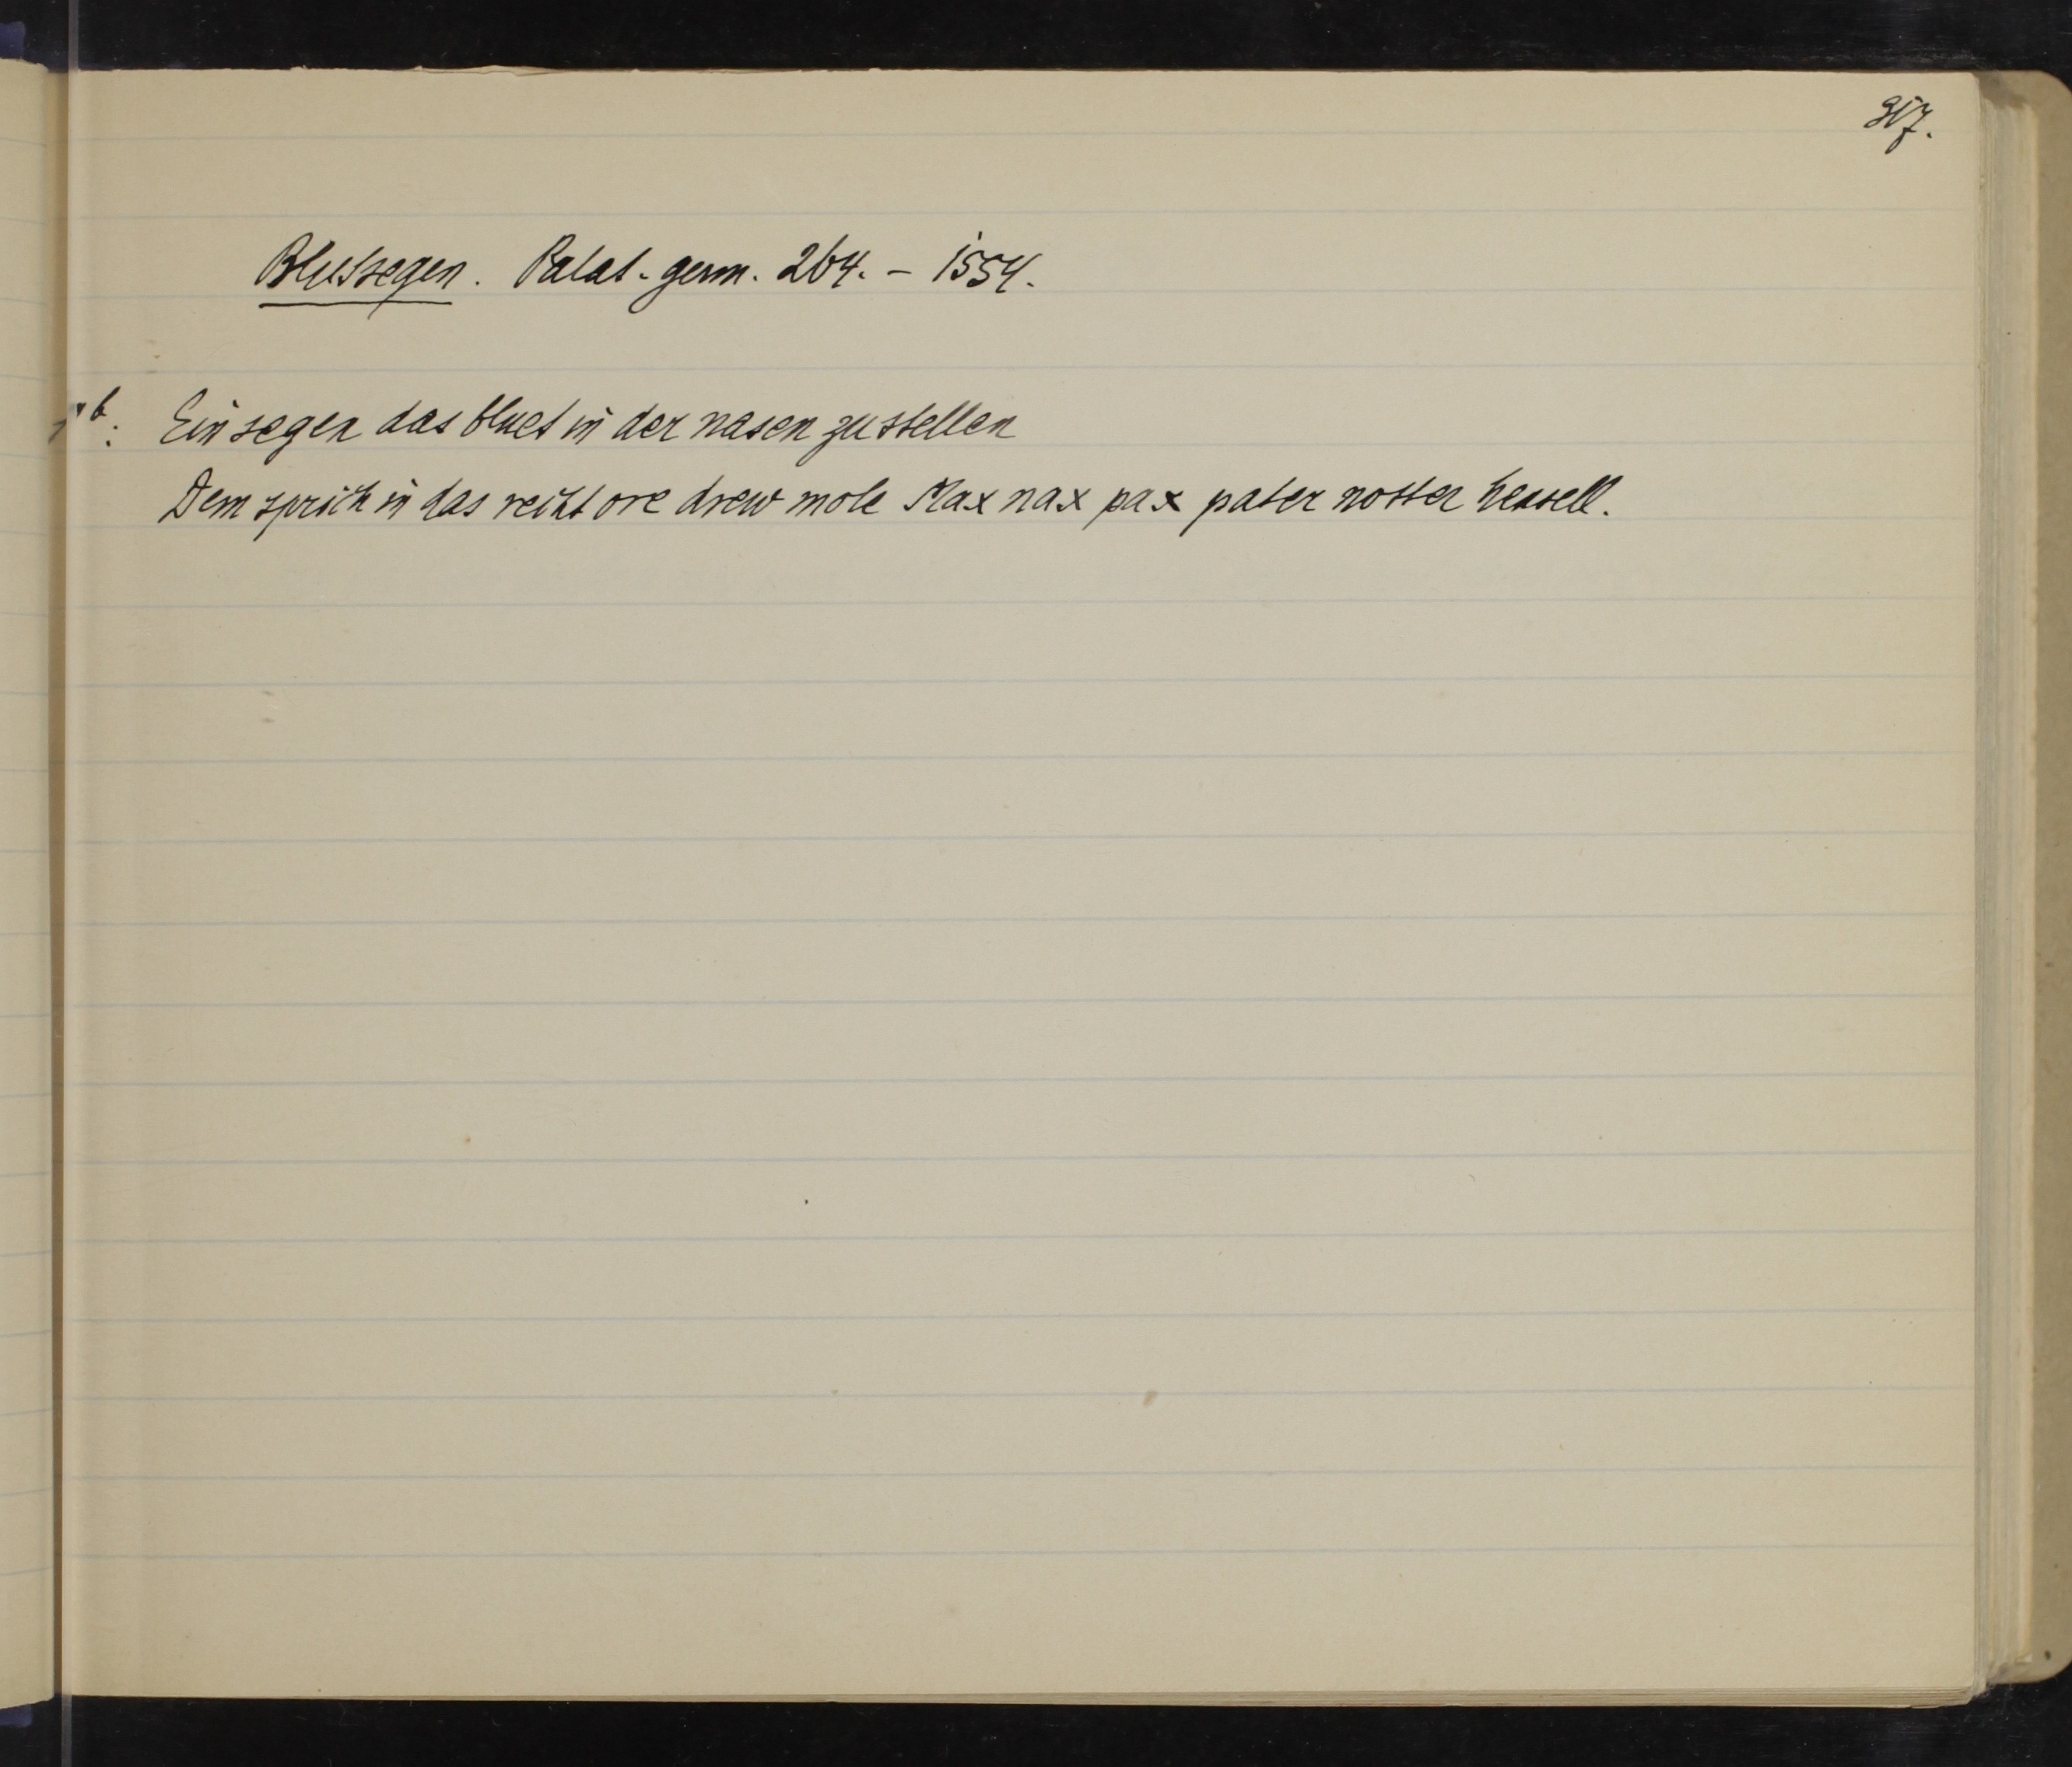 317.
Blutsegen. Palat. germ. 264. – 1554.
b: Ein segen das bluet in der nasen zu stellen
Dem sprich in das recht ore drew mole Max nax pax pater noster